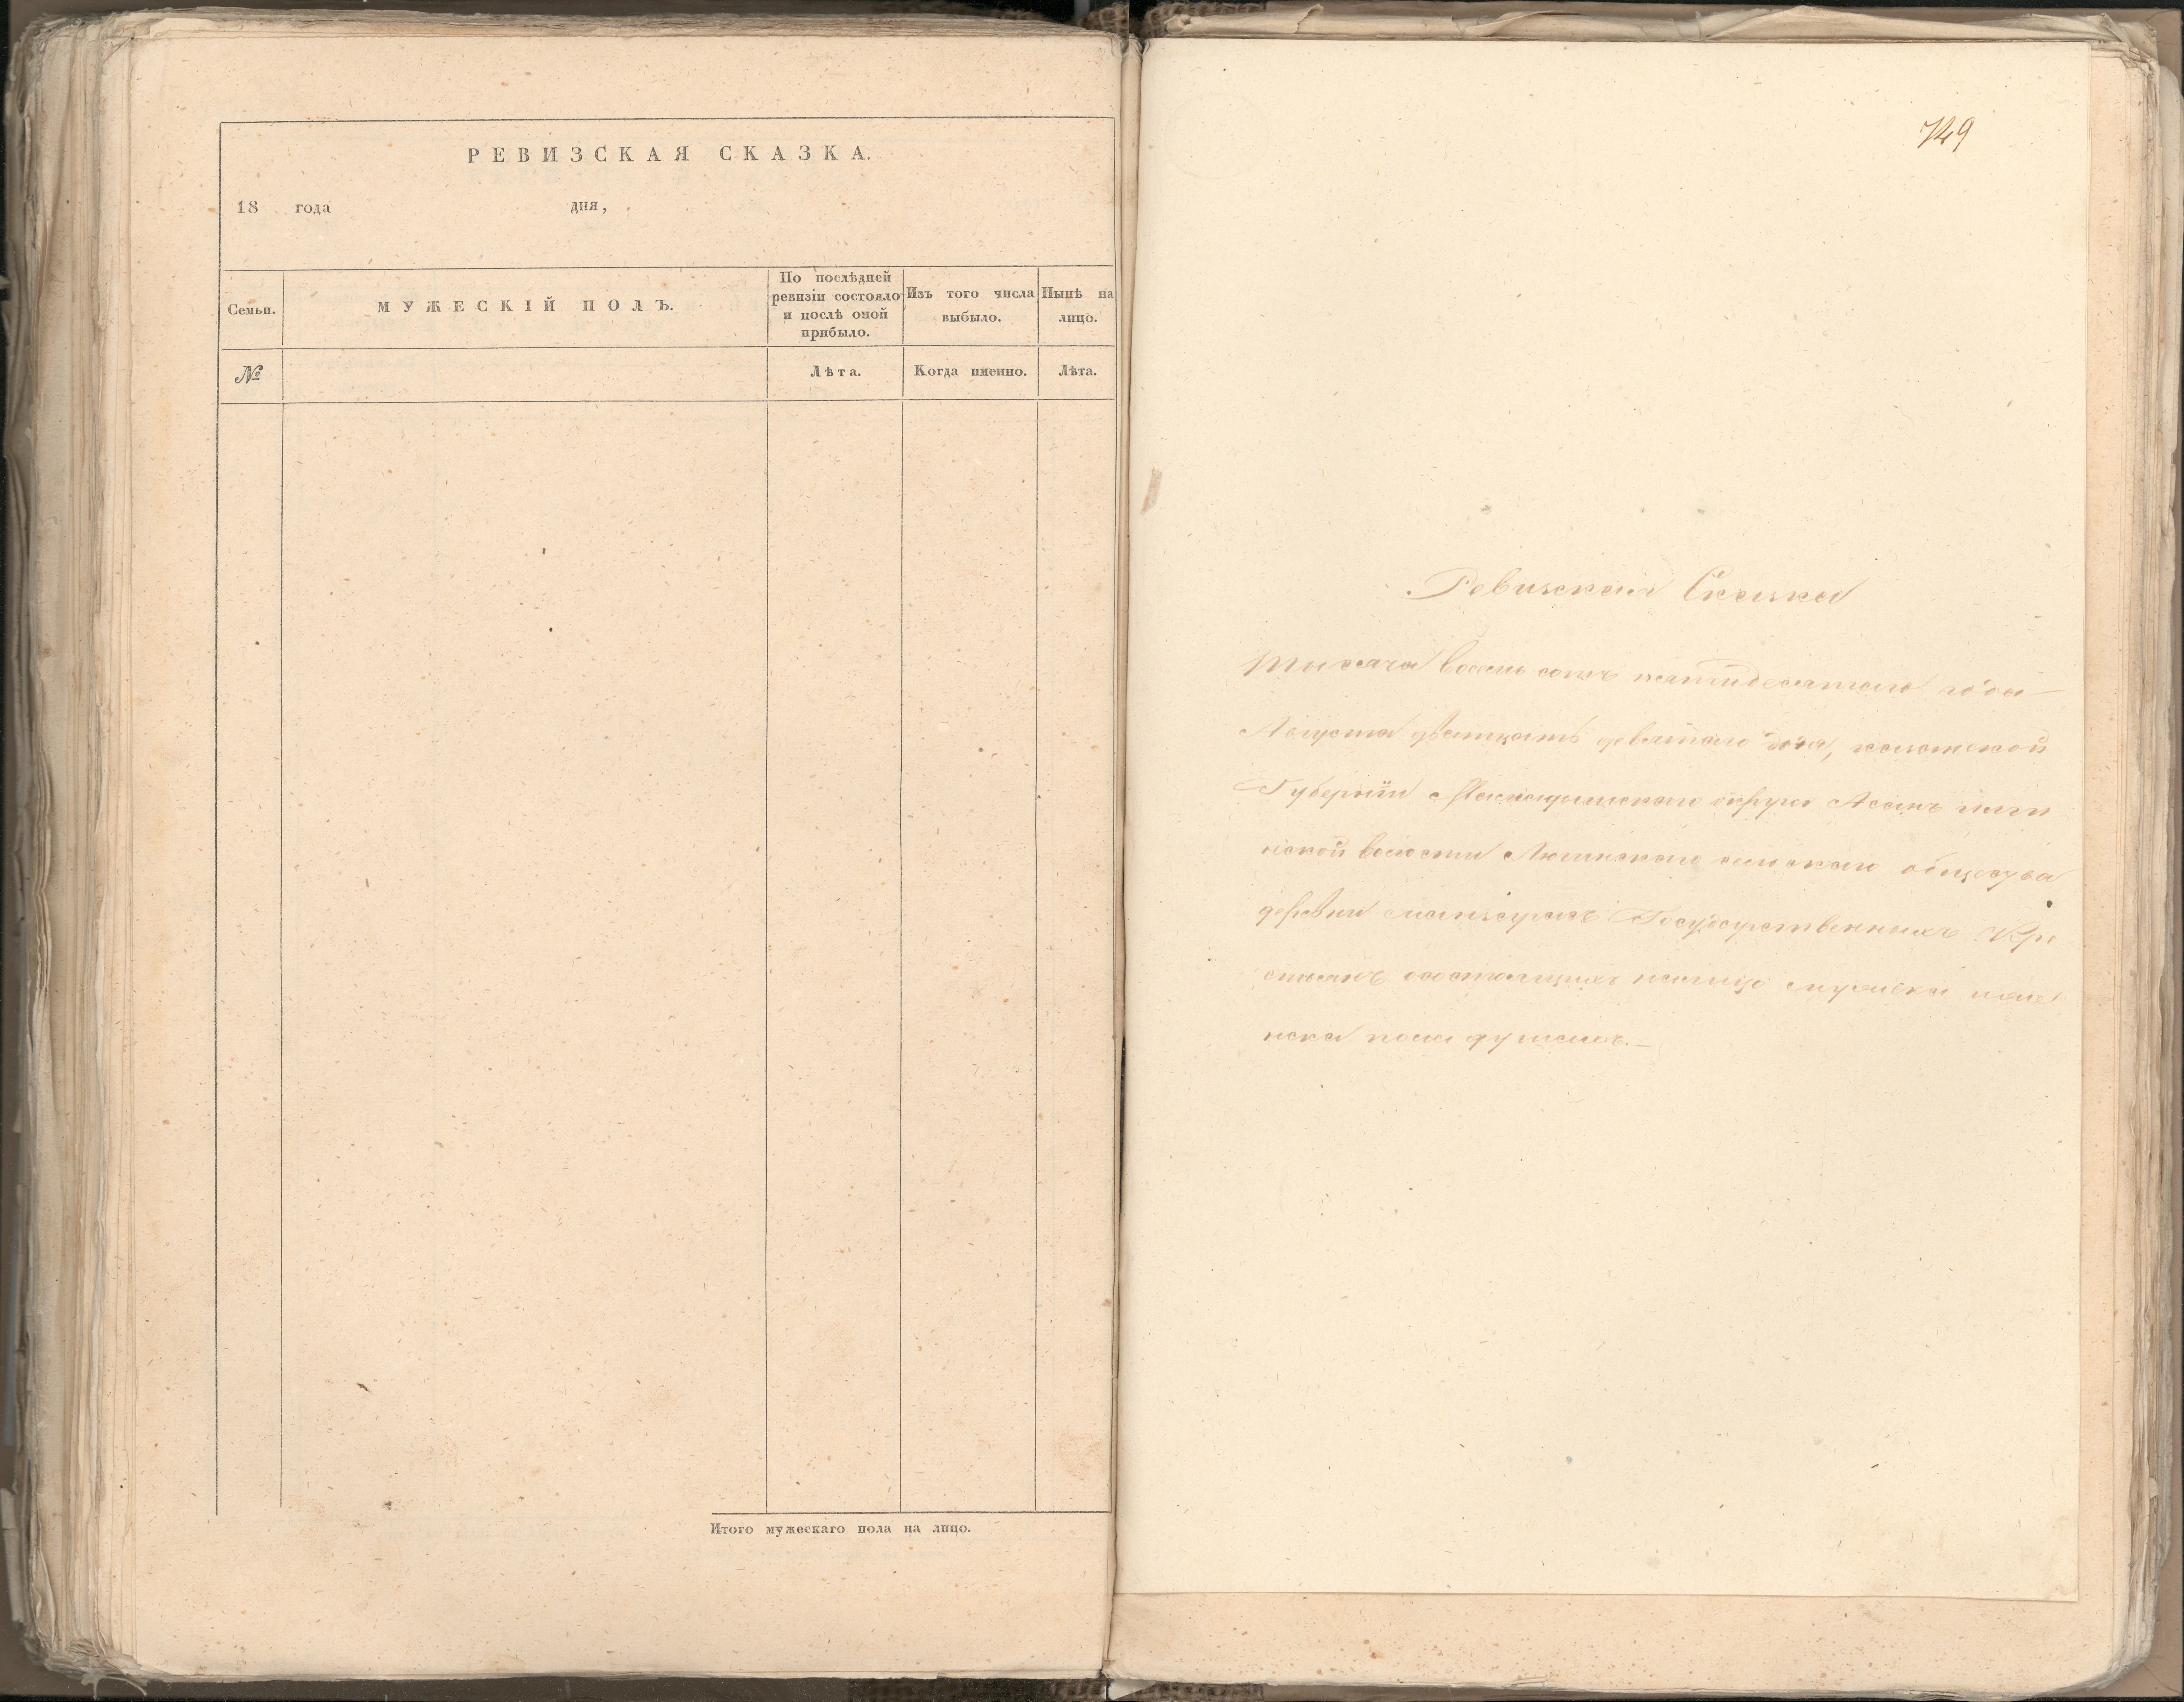 РЕВИЗСКАЯ СКАЗКА.
18 года дня,
Семьи.
МУЖЕСКІЙ ПОЛЪ.
По послѣдней
ревизіи состояло
и послѣ оной
прибыло.
Изъ того числа
выбыло.
Нынѣ на
лицо.
№
Лѣта.
Когда именно.
Лѣта.
Итого мужескаго пола на лицо.
749
Ревизская Сказка
тысяча восемь сотъ пятидесятаго года
Августа дватцать девятаго дня, казанской
Губерніи Мамадышскаго округа Асанъ илги
нской волости сельскаго общества
деревни Государственныхъ Кре
стьянъ состоящихъ налицо мужеска и жене
нска пола душахъ.